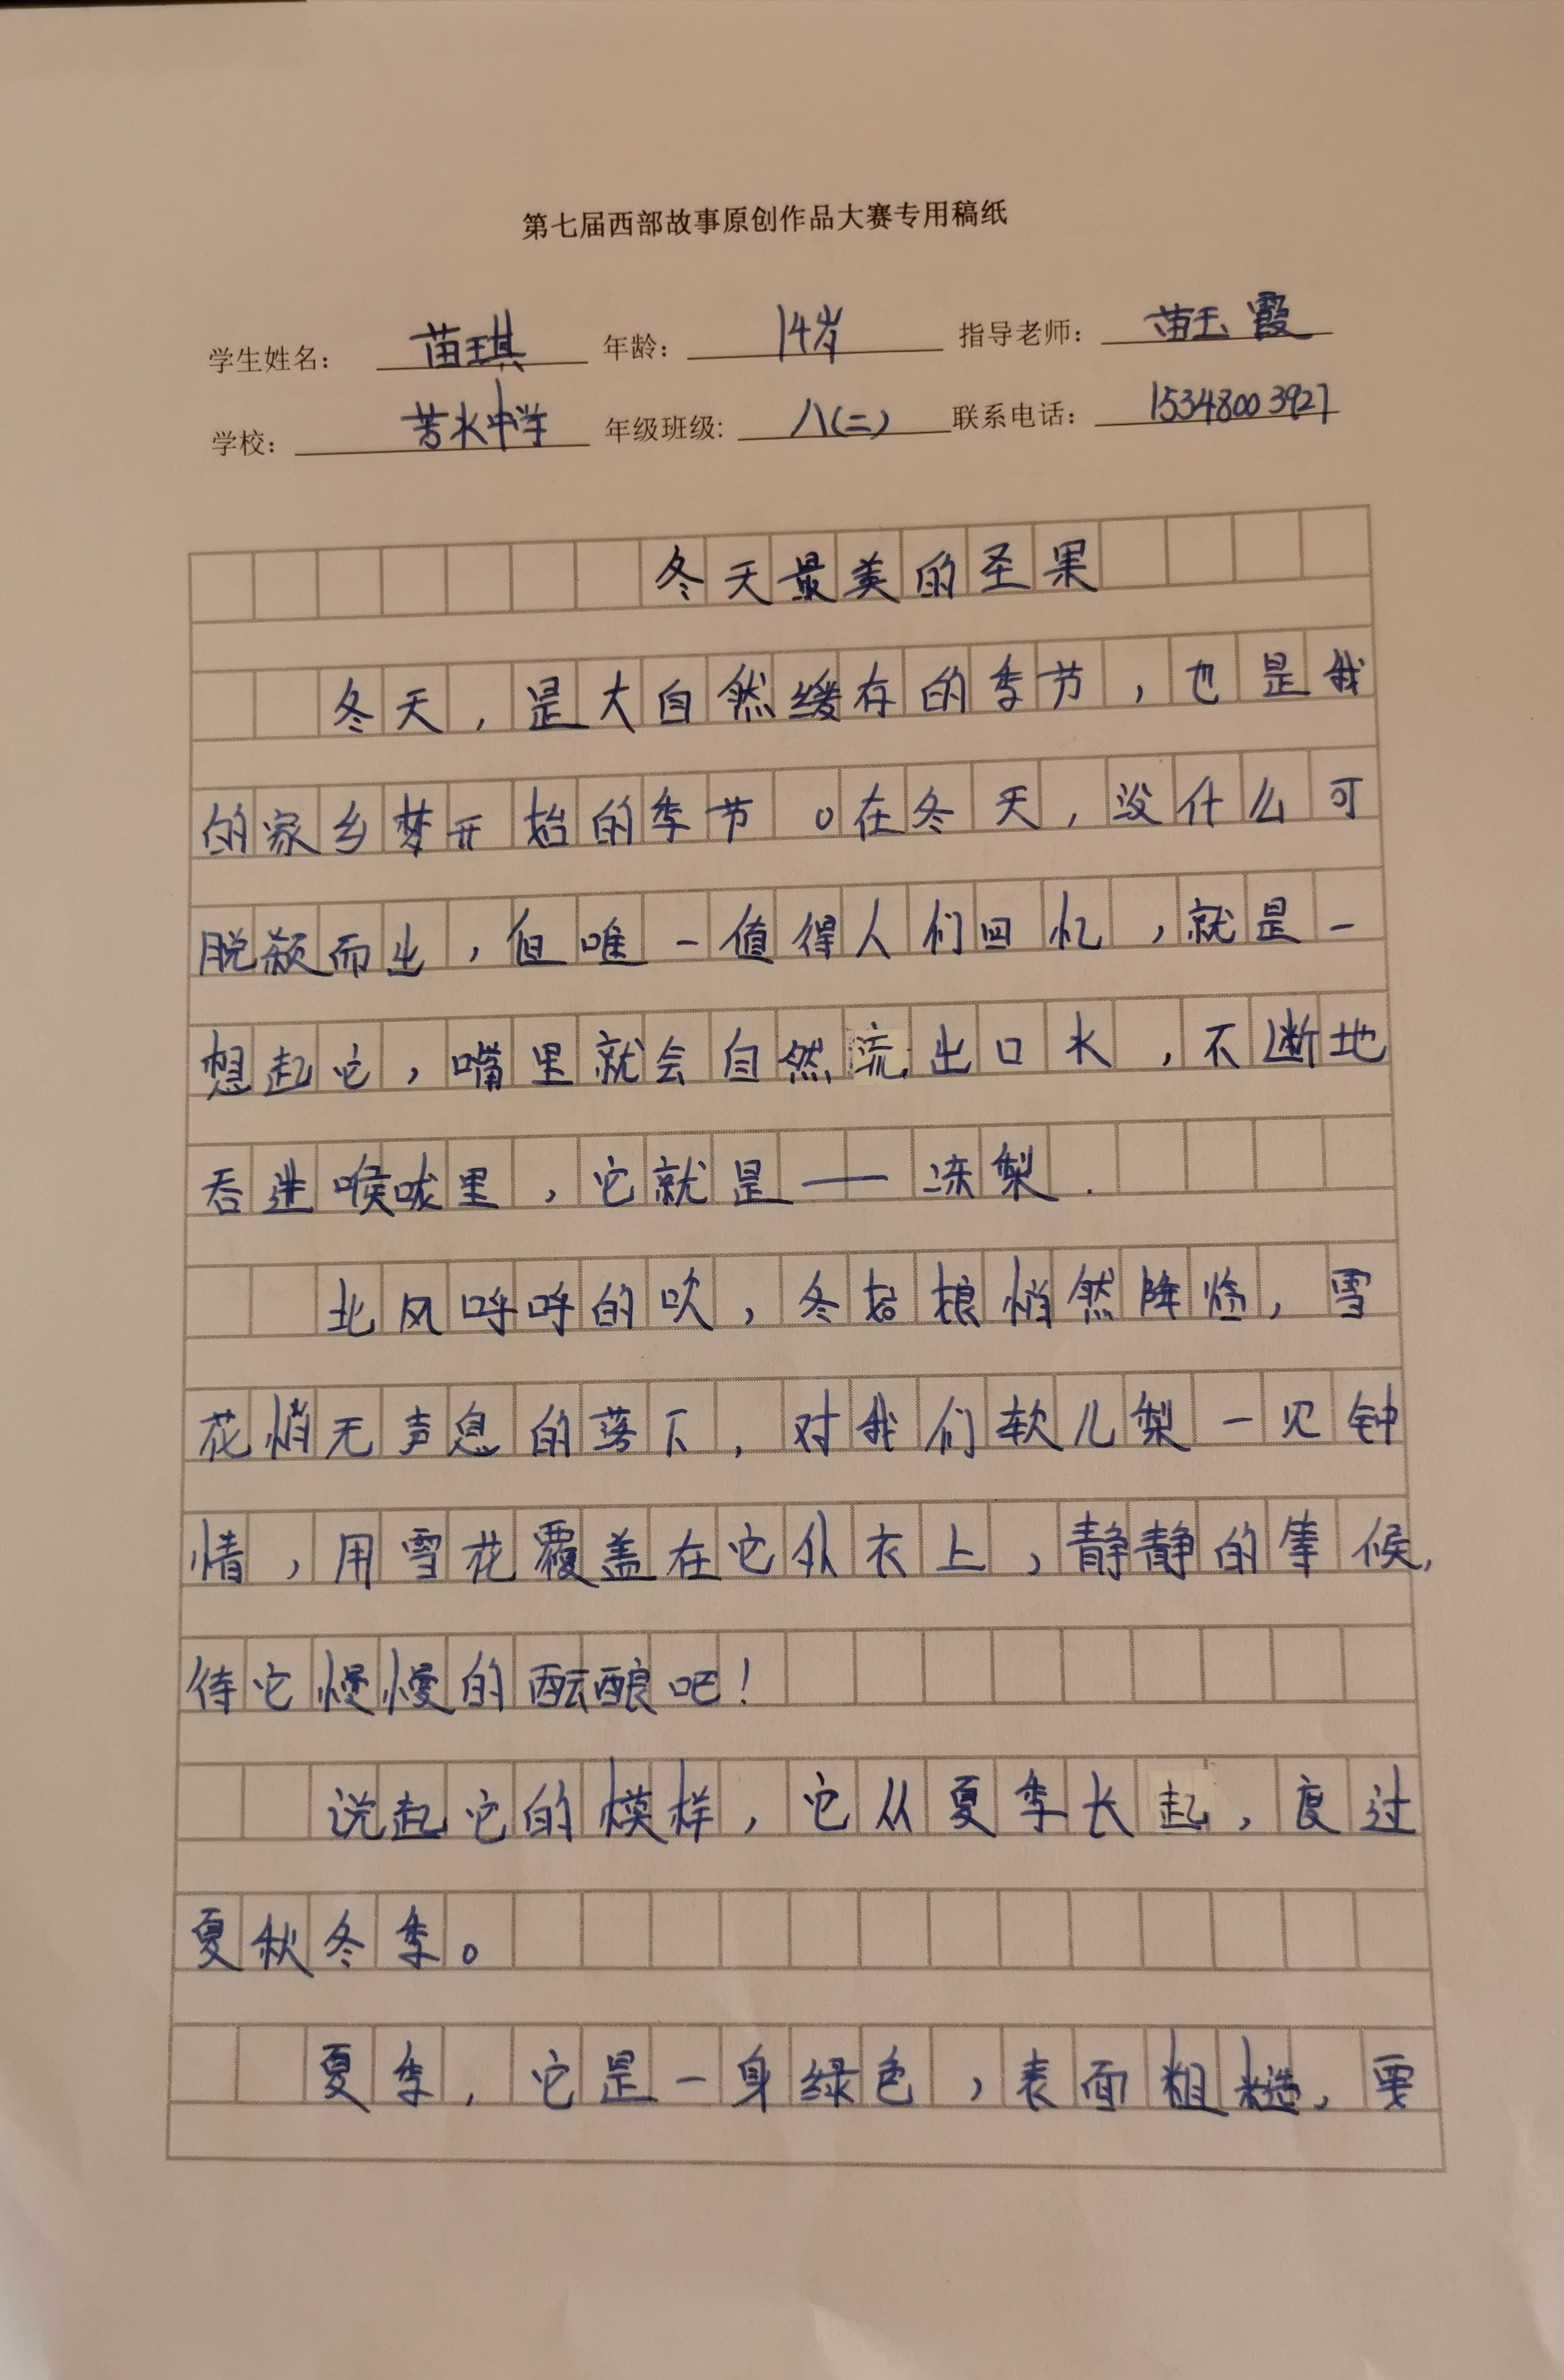 第七届西部故事原创作品大赛专用稿纸
学生姓名： 苗琪 年龄： 14岁 指导老师： 苗玉霞
学校： 芳水中学 年级班级: 八(二) 联系电话： 15348003927
冬天最美的圣果
冬天，是大自然缓存的季节，也是我
的家乡梦开始的季节。在冬天，没什么可
脱颖而出，但唯一值得人们回忆，就是一
想起它，嘴里就会自然流出口水，不断地
吞进喉咙里，它就是——冻梨.
北风呼呼的吹，冬姑娘悄然降临，雪
花悄无声息的落下，对我们软儿梨一见钟
情，用雪花覆盖在它外衣上，静静的等候，
待它慢慢的酝酿吧！
说起它的模样，它从夏季长起，度过
夏秋冬季。
夏季，它是一身绿色，表面粗糙，要